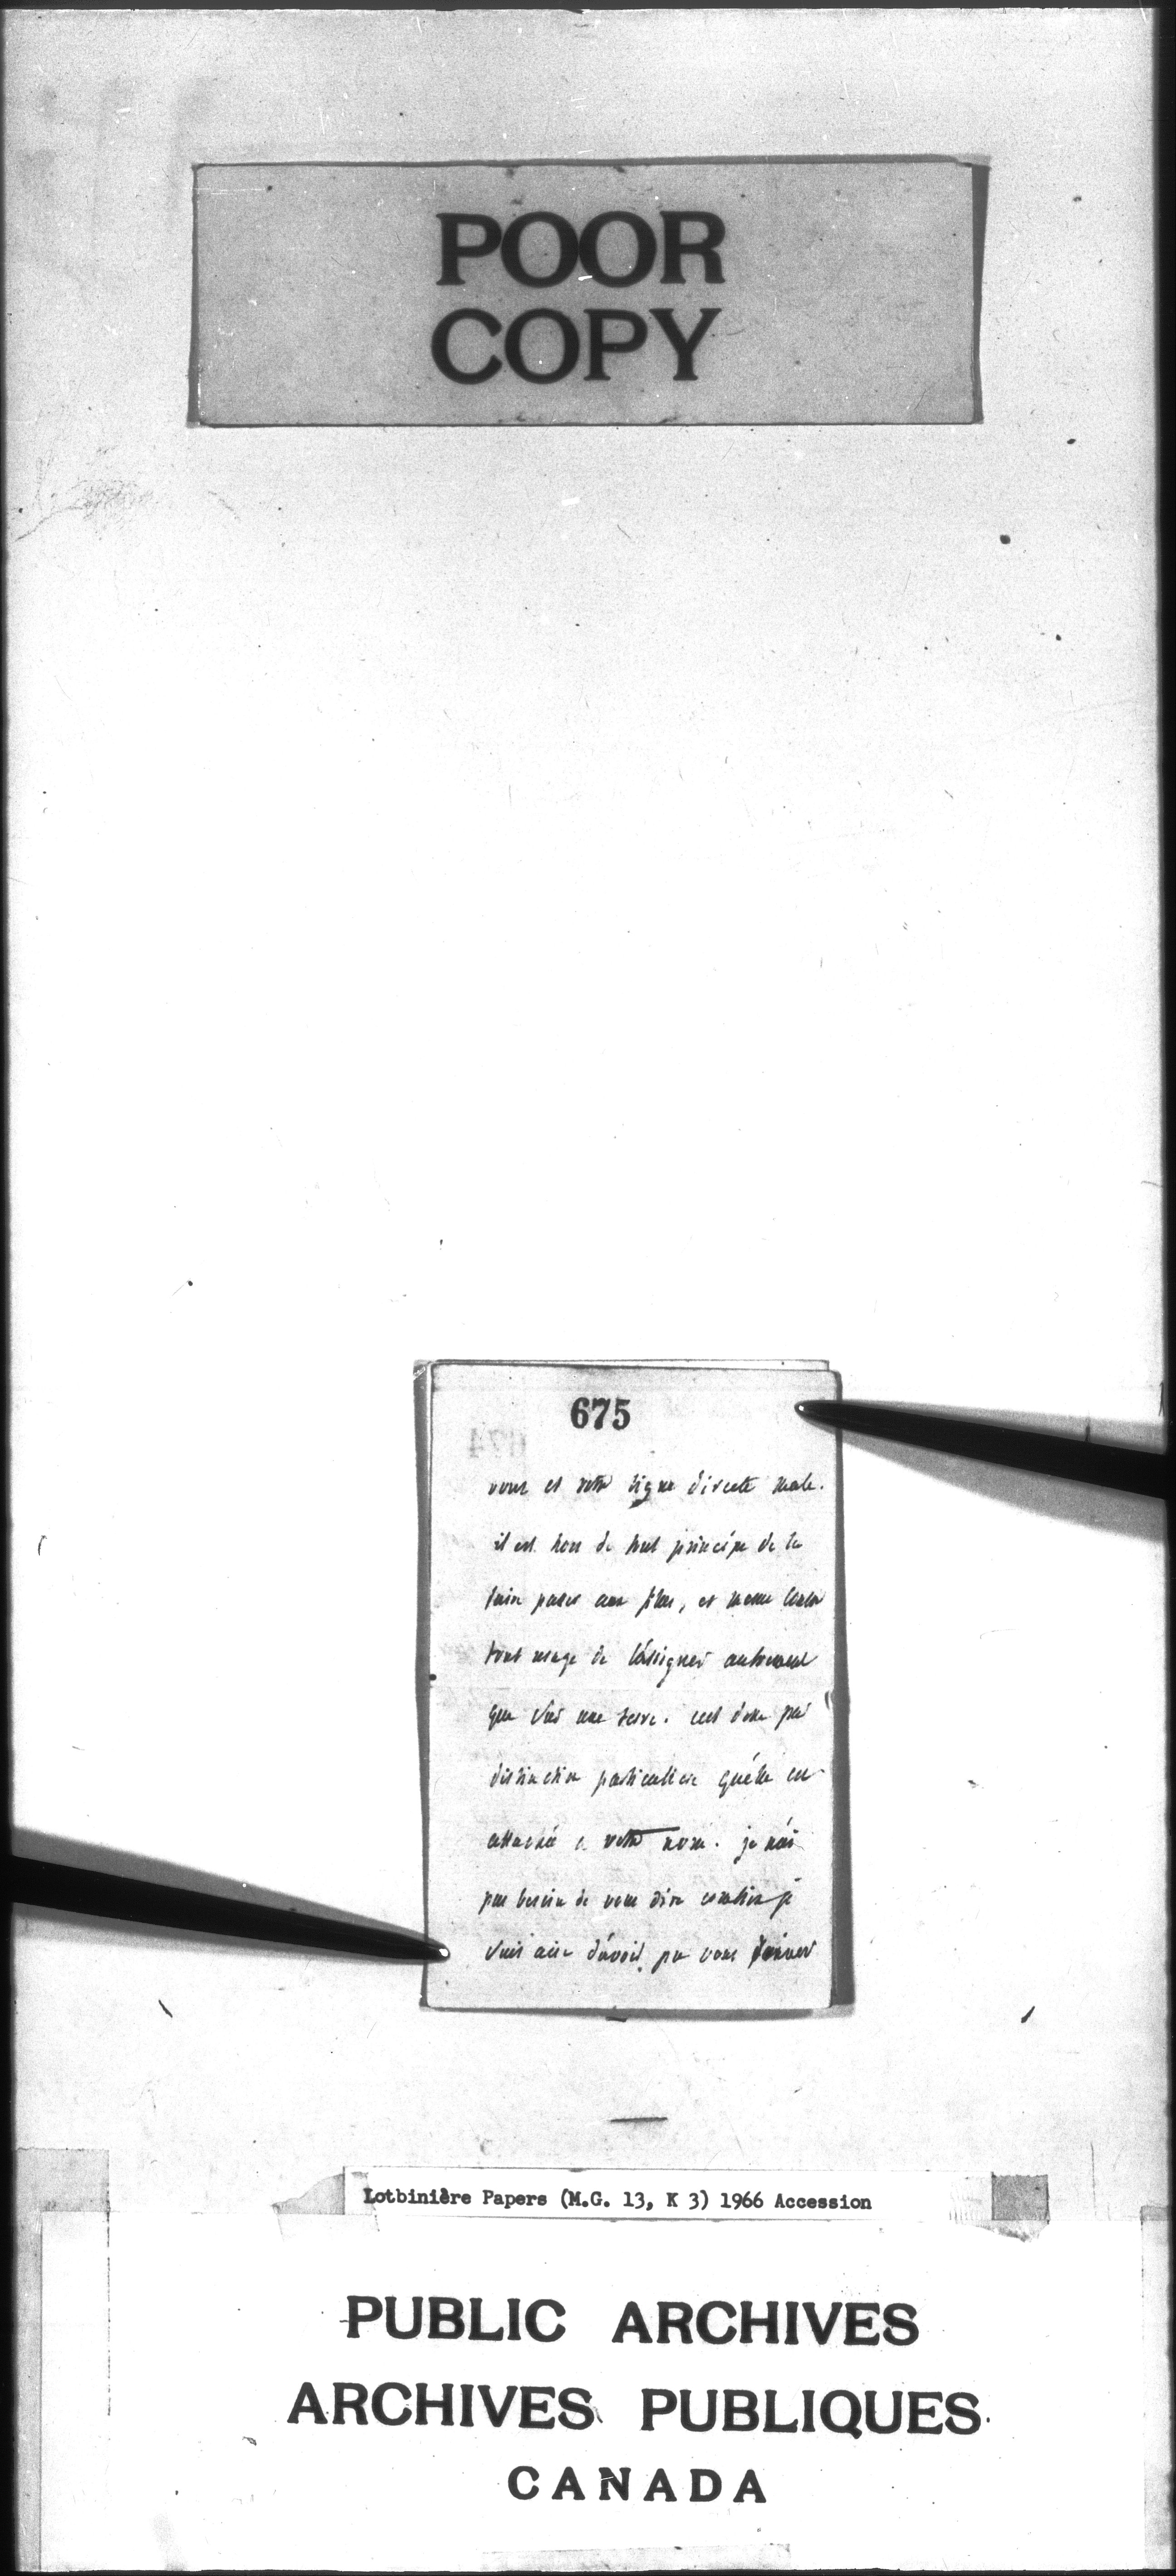 POOR
COPY
675
674
vous et votre ligne directe male.
il est hors de tout principe de la
faire passer aux filles, et meme contre
tout usage de l'assigner autrement
que sur une terre. cest donc par
distinction particuliere quélle est
attachée a votre nom. je nái
pas besoin de vous dire combien je
suis aise dávoir pu vous donner
Lotbinière Papers (M.G. 13, K 3) 1966 Accession
PUBLIC ARCHIVES
ARCHIVES PUBLIQUES
CANADA